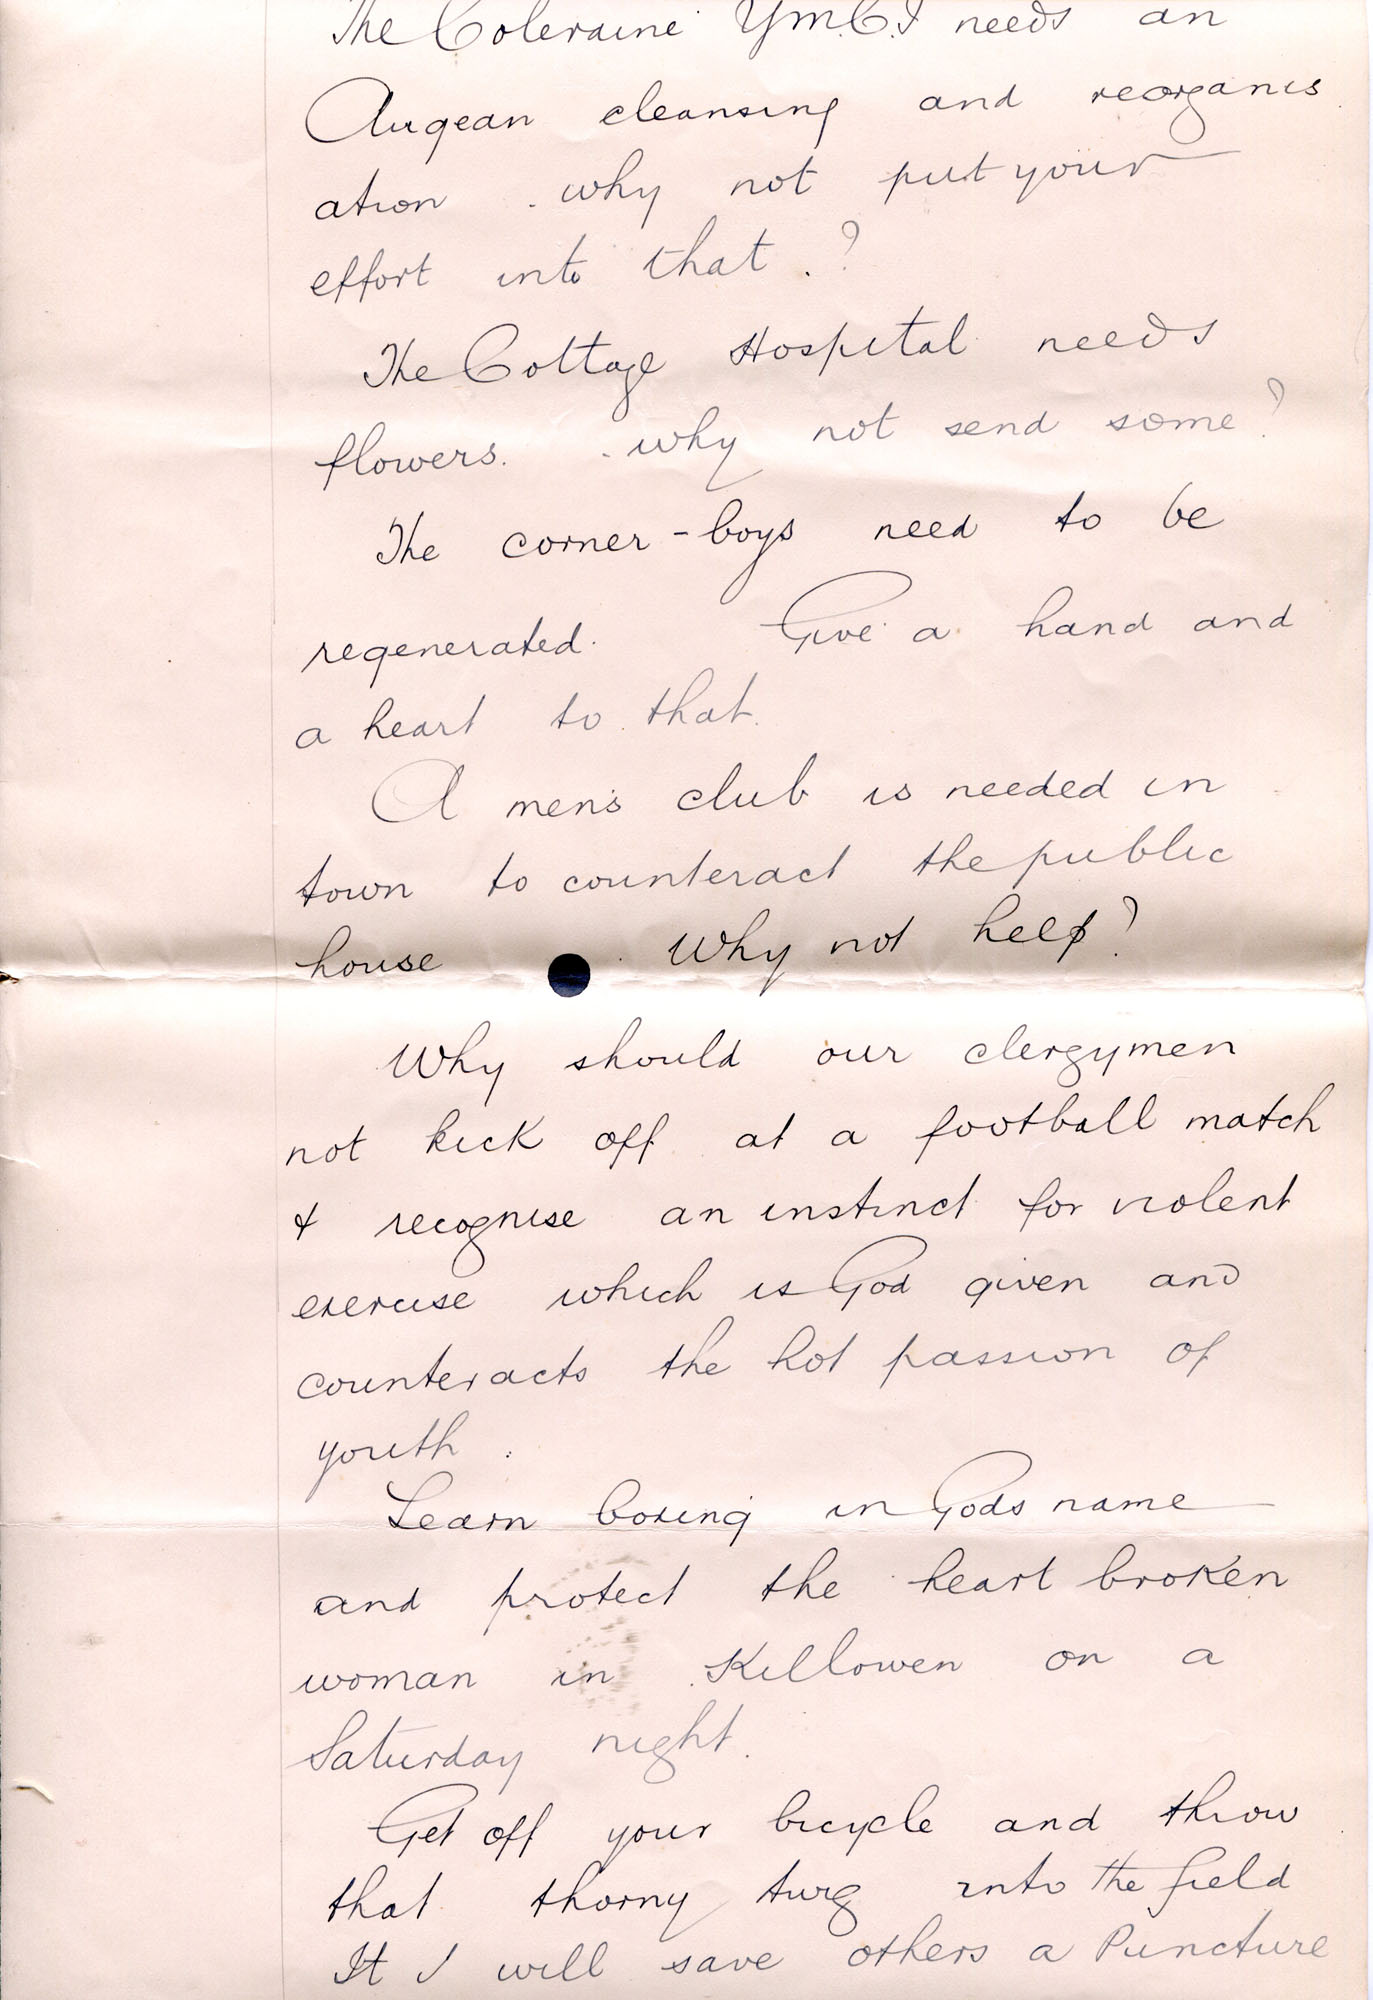 The Coleraine Y.M.C.I needs an
Augean cleansing and reorganis
ation . why not put your
effort into that . ?
The Cottage Hospital needs
flowers. . why not send some?
The corner-boys need to be
regenerated. Give a hand and
a heart to that.
A men's club is needed in
town to counteract the public
house . Why not help?
Why should our clergymen
not kick off at a football match
& recognise an instinct for violent
exercise which is God given and
counteracts the hot passion of
youth .
Learn boxing in Gods name
and protect the heart broken
woman in Killowen on a
Saturday night.
Get off your bicycle and throw
that thorny twig into the field
It I will save others a Puncture